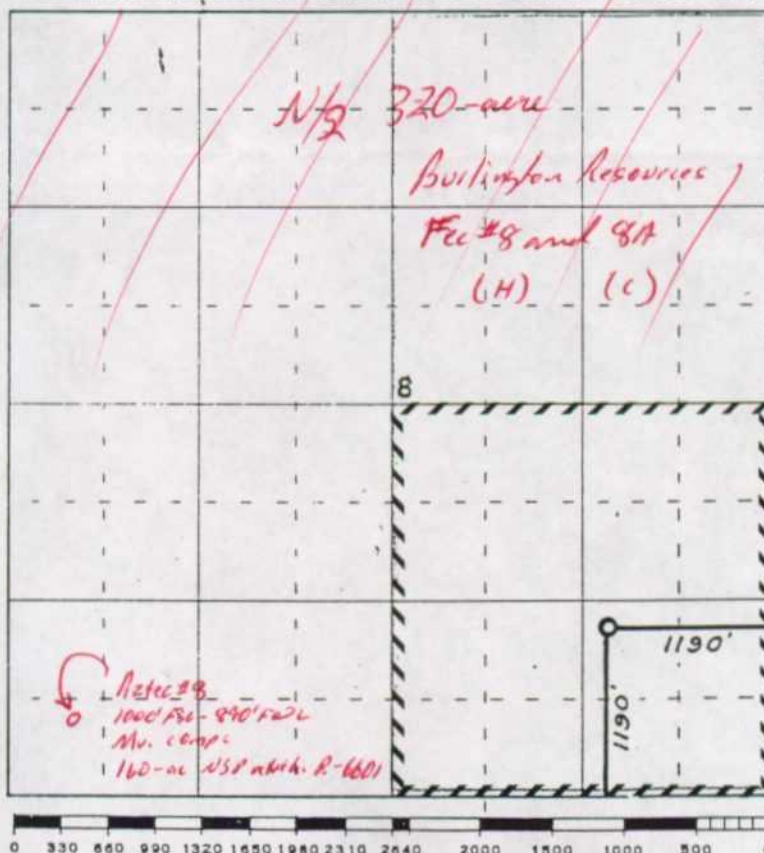 N/2 320-acre
Burlington Resources
Fee #8 and 8A
(H) (C)
8
1190'
1190'
Aztec #8
1000' FSL - 890' FWL
Mv. comp.
160-ac NSP auth. R-6601
0 330 660 990 1320 1650 1980 2310 2640 2000 1500 1000 500